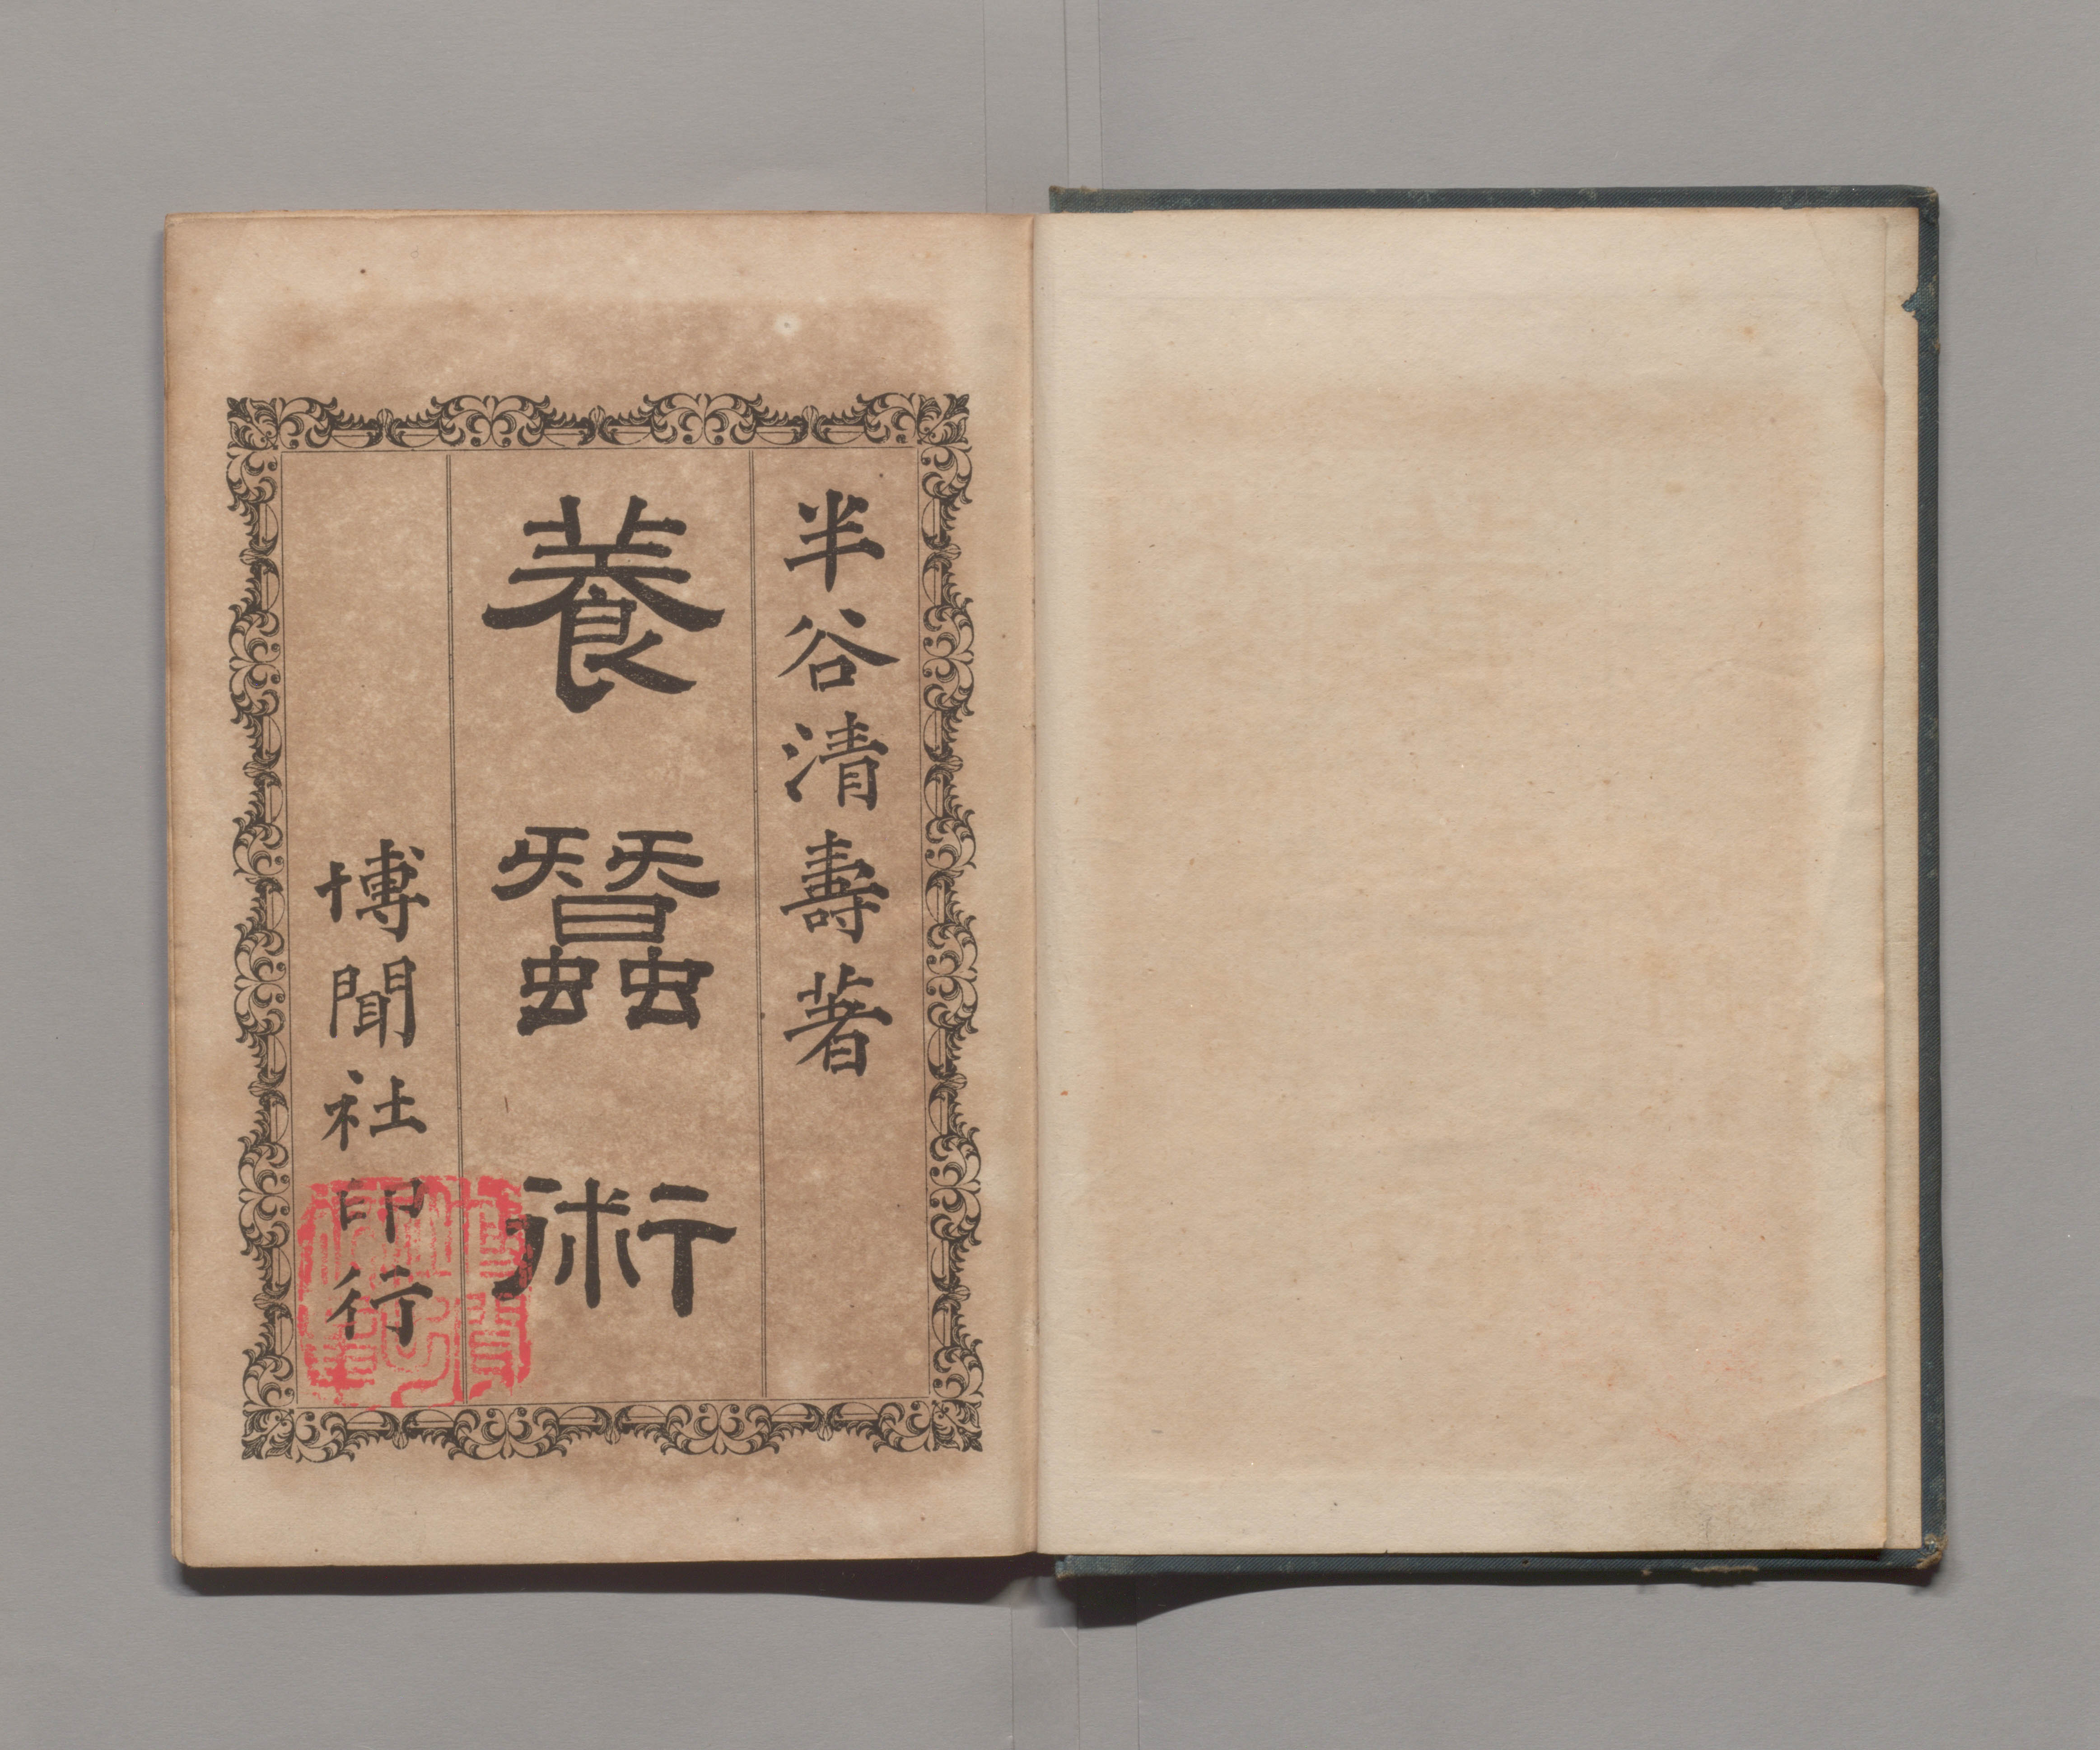 半谷清壽著
養蠶術
博聞社印行